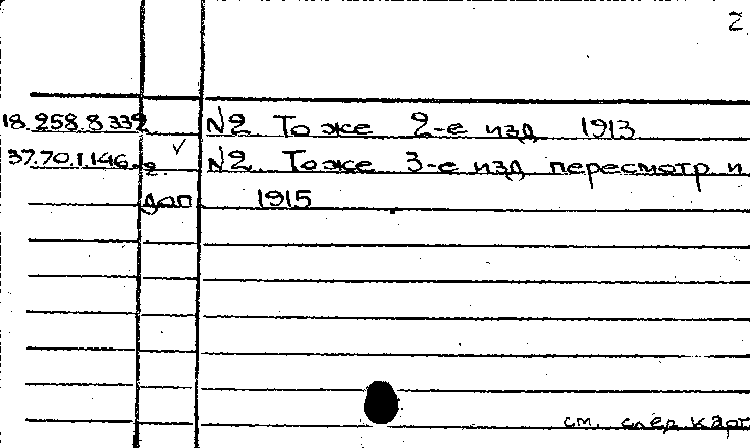 2
18.258.8.339 N2. То же 2-е изд 1913
37.70.1.146 N2. То же 3-е изд пересмотр и
доп 1915
см. след карт